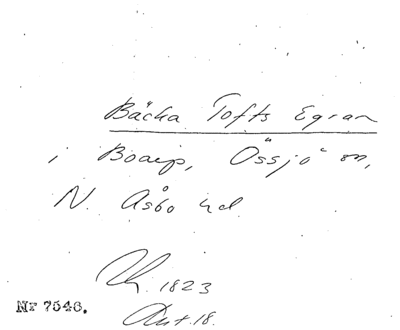 Bäcka Tofts Egran
i Boarp, Össjö sn,
N. Åsbo hd
1823
Ant. 18.
Nr 7546.